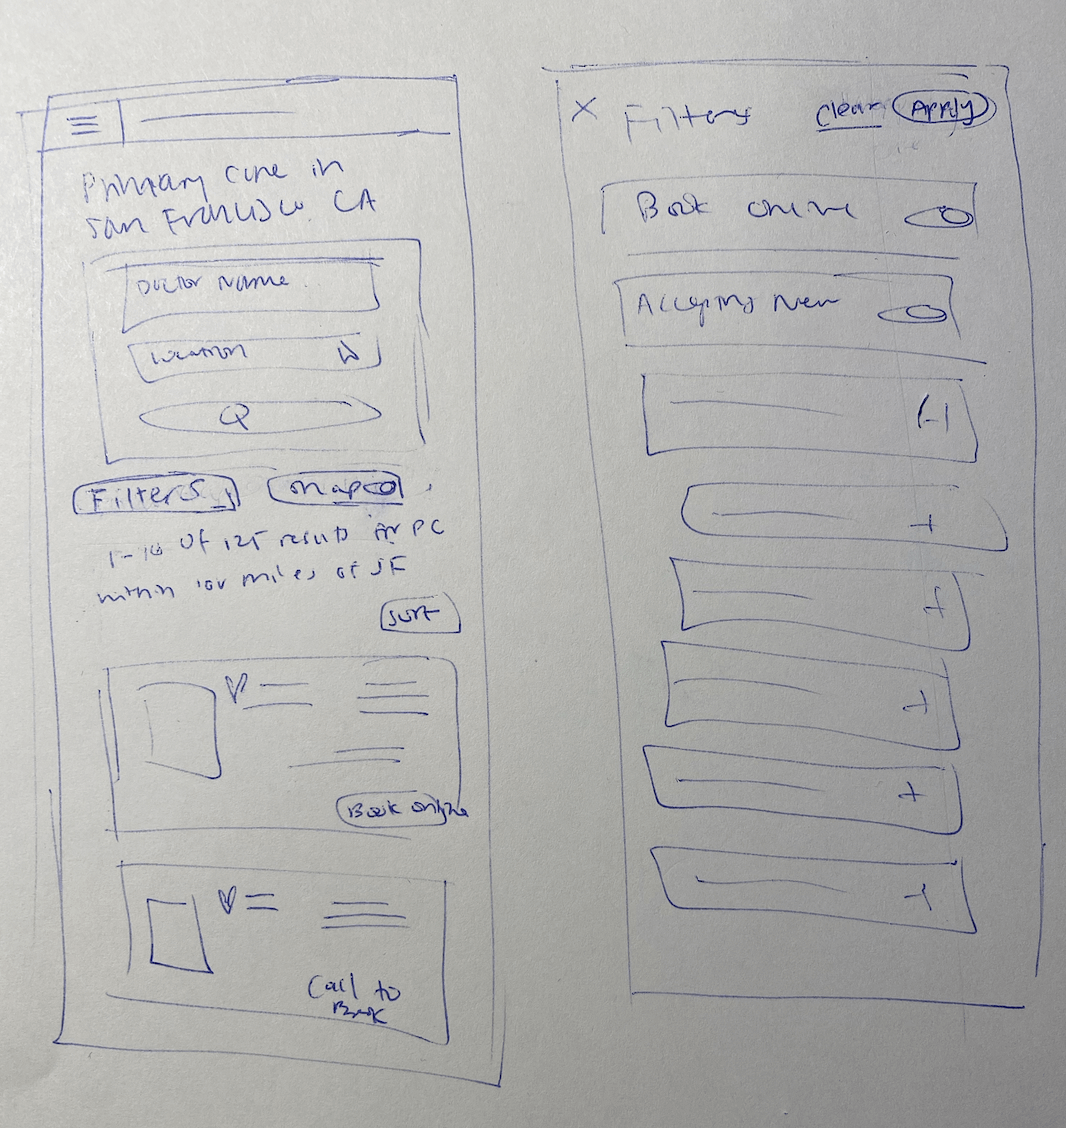 Primary care in
San Francisco. CA
Doctor Name
Location
Filters
map
1-10 of 125 results for PC
within 100 miles of SF
Sort
Book online
Call to
Book
X Filters Clear Apply
Book online
Accepting New